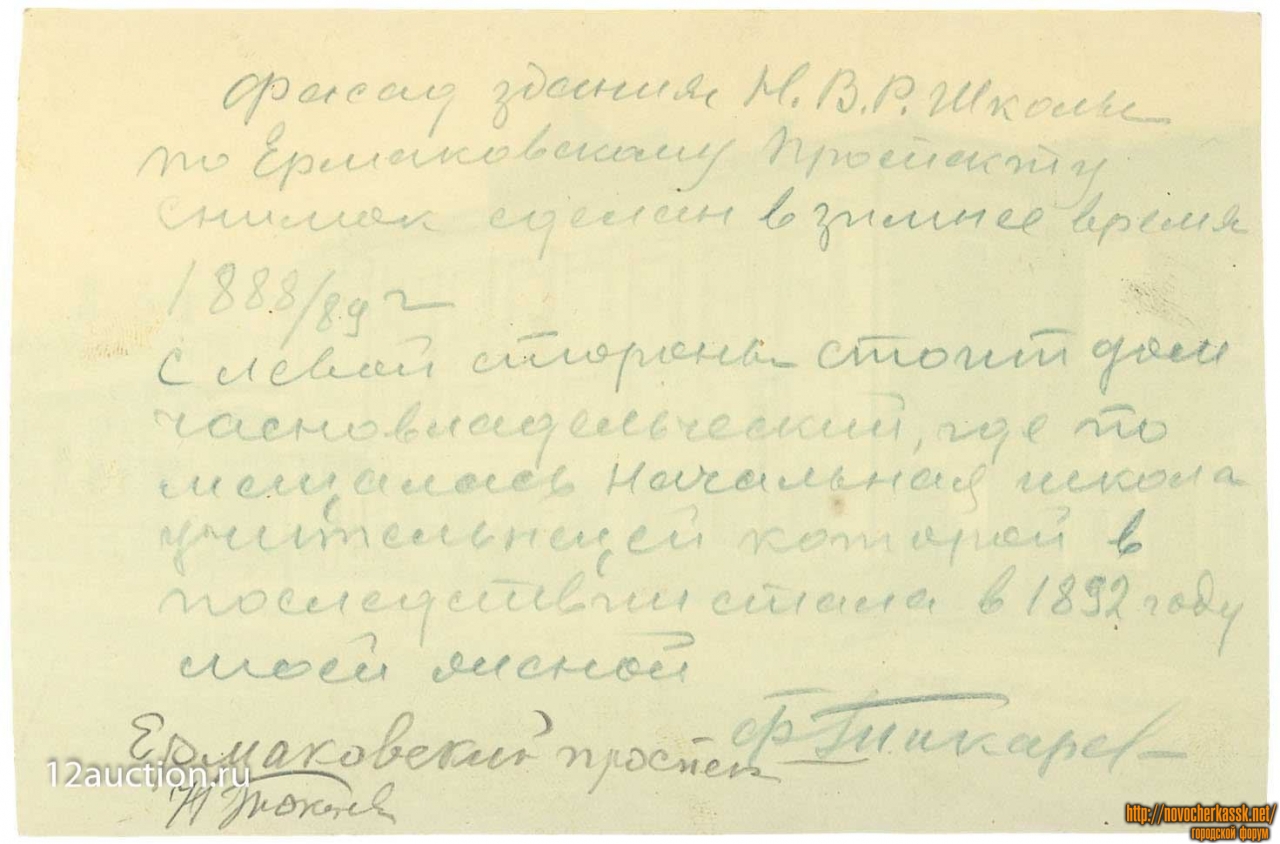 Фасад здания Н.В.Р. Школы
по Ермаковскому проспекту
снимок сделан в зимнее время
1888/89 г
С левой стороны стоит дом
часновладельческий, где по
мещалась Начальная школа
учительницей которой в
последствии стала в 1892 году
моей женой
Ермаковский проспек
12auction.ru
http://novocherkassk.net/
городской форум